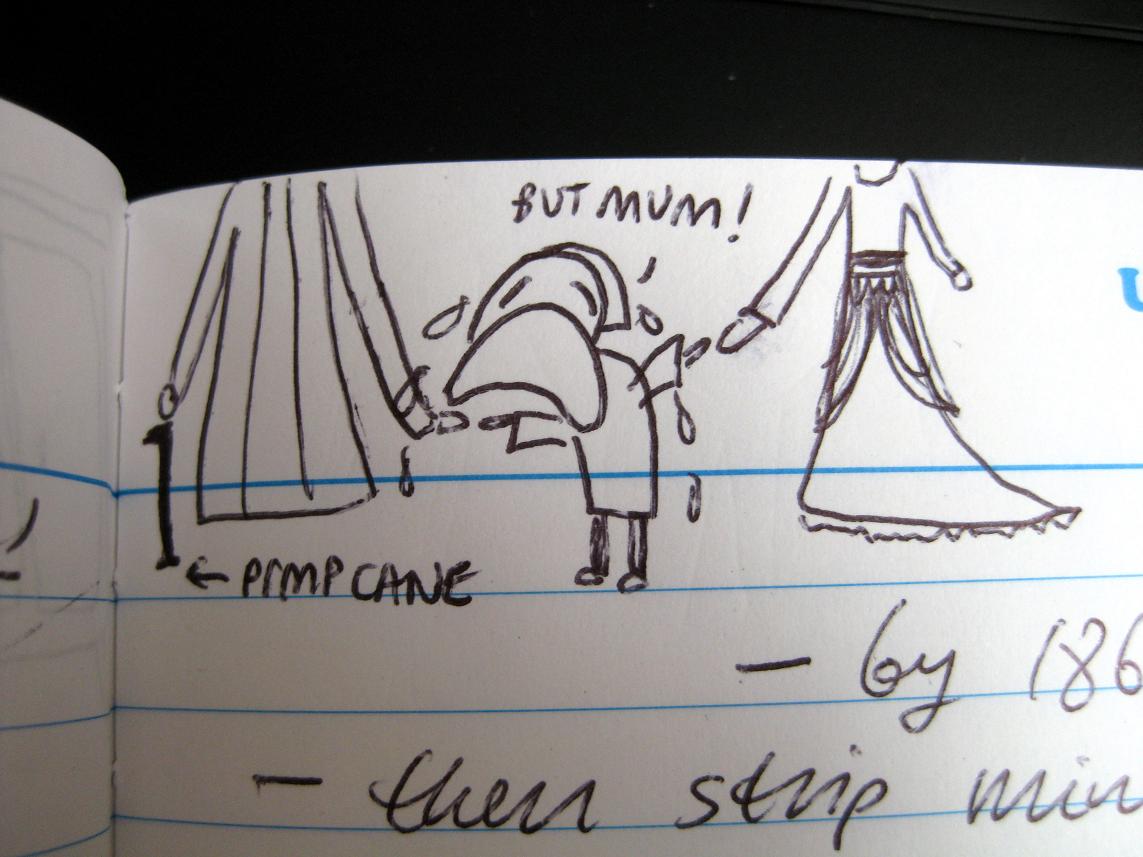 BUT MUM!
← PIMP CANE
- by 186
- then strip min